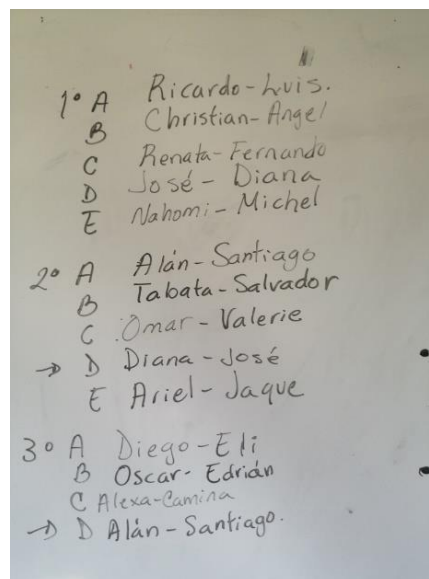 1º A Ricardo-Luis.
B Christian-Angel
C Renata-Fernando
D José - Diana
E Nahomi - Michel
2º A Alán-Santiago
B Tabata-Salvador
C Omar - Valerie
→ D Diana - José
E Ariel-Jaque
3º A Diego-Eli
B Oscar- Edrián
C Alexa-Camina
→ D Alán-Santiago.